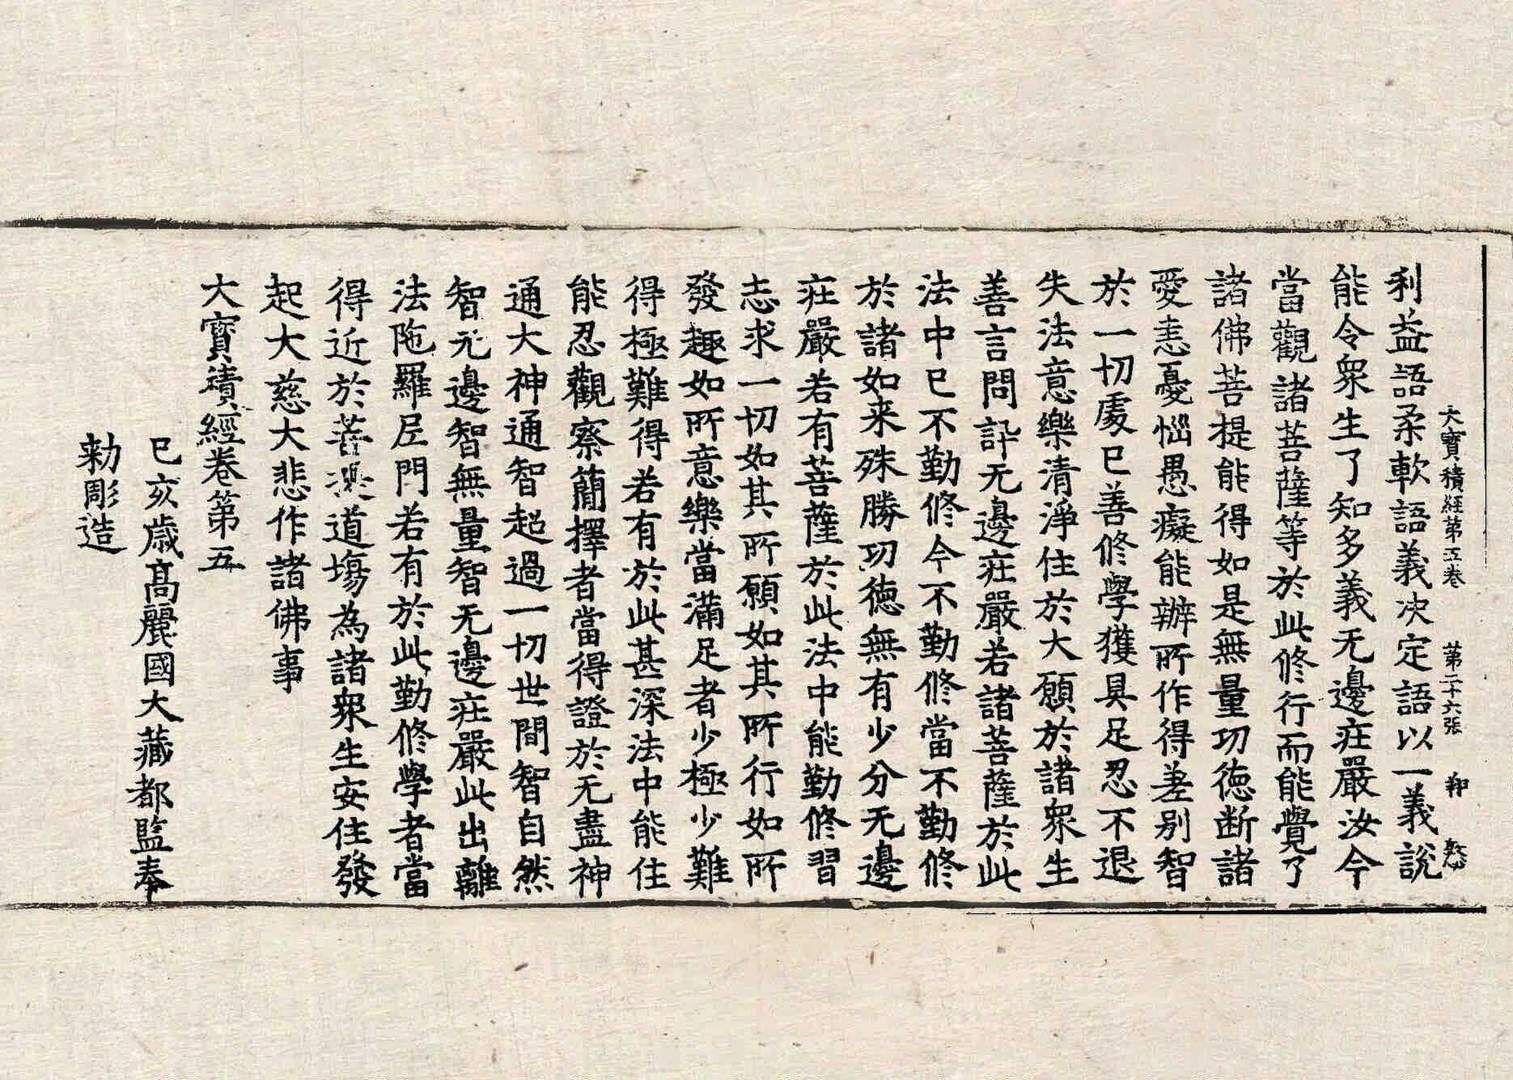 大寶積經第五卷 第二十六張
利益語柔軟語義决定語以一義說
能令衆生了知多義无邊莊嚴汝今
當觀諸菩薩等於此修行而能覺了
諸佛菩提能得如是無量功德断諸
愛恚憂惱愚癡能辦所作得差别智
於一切處已善修學獲具足忍不退
失法意樂清淨住於大願於諸衆生
善言問訊无邊莊嚴若諸菩薩於此
法中已不勤修今不勤修當不勤修
於諸如来殊勝功德無有少分无邊
莊嚴若有菩薩於此法中能勤修習
志求一切如其所願如其所行如所
發趣如所意樂當滿足者少極少難
得極難得若有於此甚深法中能住
能忍觀察簡擇者當得證於无盡神
通大神通智超過一切世間智自然
智无邊智無量智无邊莊嚴此出離
法陁羅尼門若有於此勤修學者當
得近於菩提道場為諸衆生安住發
起大慈大悲作諸佛事
大寶積經卷第五
己亥歲高麗國大藏都監奉
勑彫造